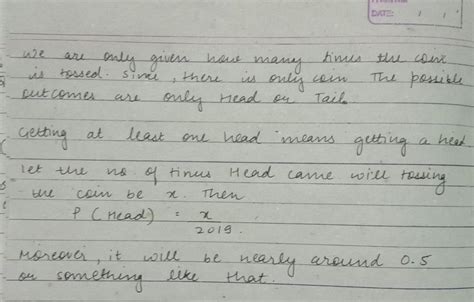 DATE: / /
we are only given how many times the coin
is tossed. Since, there is only coin The possible
outcomes are only Head or Tail.
Getting at least one head means getting a head.
let the no. of times Head came will tossing
the coin be x. Then
P (Head) = x
2019.
Moreover, it will be nearly around 0.5
or something like that.